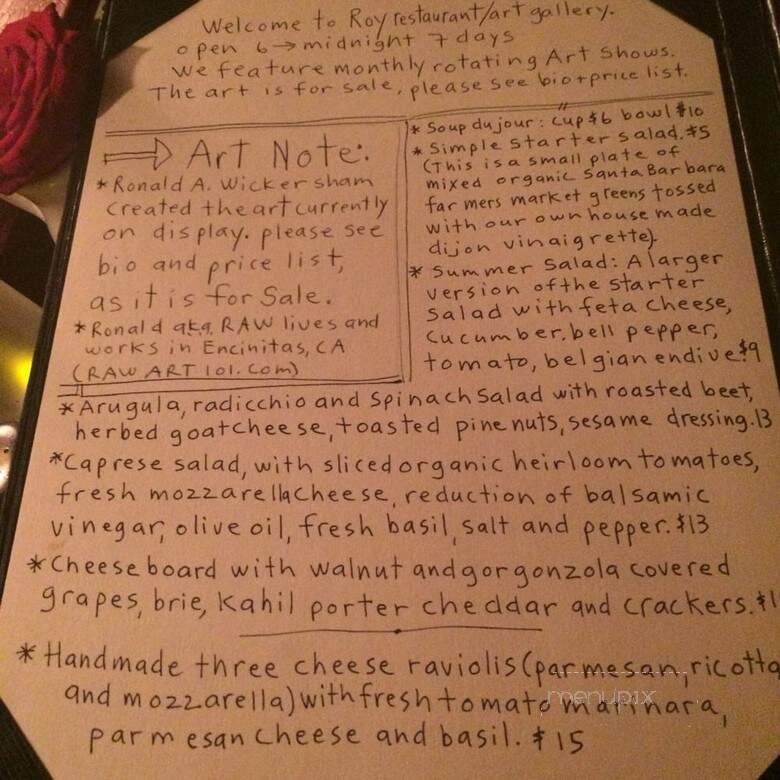 Welcome to Roy restaurant/art gallery.
open 6→midnight 7 days
we feature monthly rotating Art Shows.
The art is for sale, please see bio+price list.
Art Note:
* Ronald A. Wickersham
created the art currently
on display. please see
bio and price list,
as it is for Sale.
* Ronald aka RAW lives and
works in Encinitas, CA
(RAW ART 101.com)
* Soup du jour: cup $6 bowl $10
* Simple Starter salad. $5
(This is a small plate of
mixed organic Santa Barbara
farmers market greens tossed
with our own house made
dijon vinaigrette).
* Summer Salad: A larger
version of the starter
salad with feta cheese,
cucumber, bell pepper,
tomato, belgian endive. $9
* Arugula, radicchio and Spinach Salad with roasted beet,
herbed goat cheese, toasted pine nuts, sesame dressing. 13
* Caprese salad, with sliced organic heirloom tomatoes,
fresh mozzarella cheese, reduction of balsamic
vinegar, olive oil, fresh basil, salt and pepper. $13
* Cheese board with walnut and gorgonzola covered
grapes, brie, Kahil porter cheddar and crackers. $1
* Handmade three cheese raviolis (parmesan, ricotta
and mozzarella) with fresh tomato marinara,
parmesan cheese and basil. $15
menupix